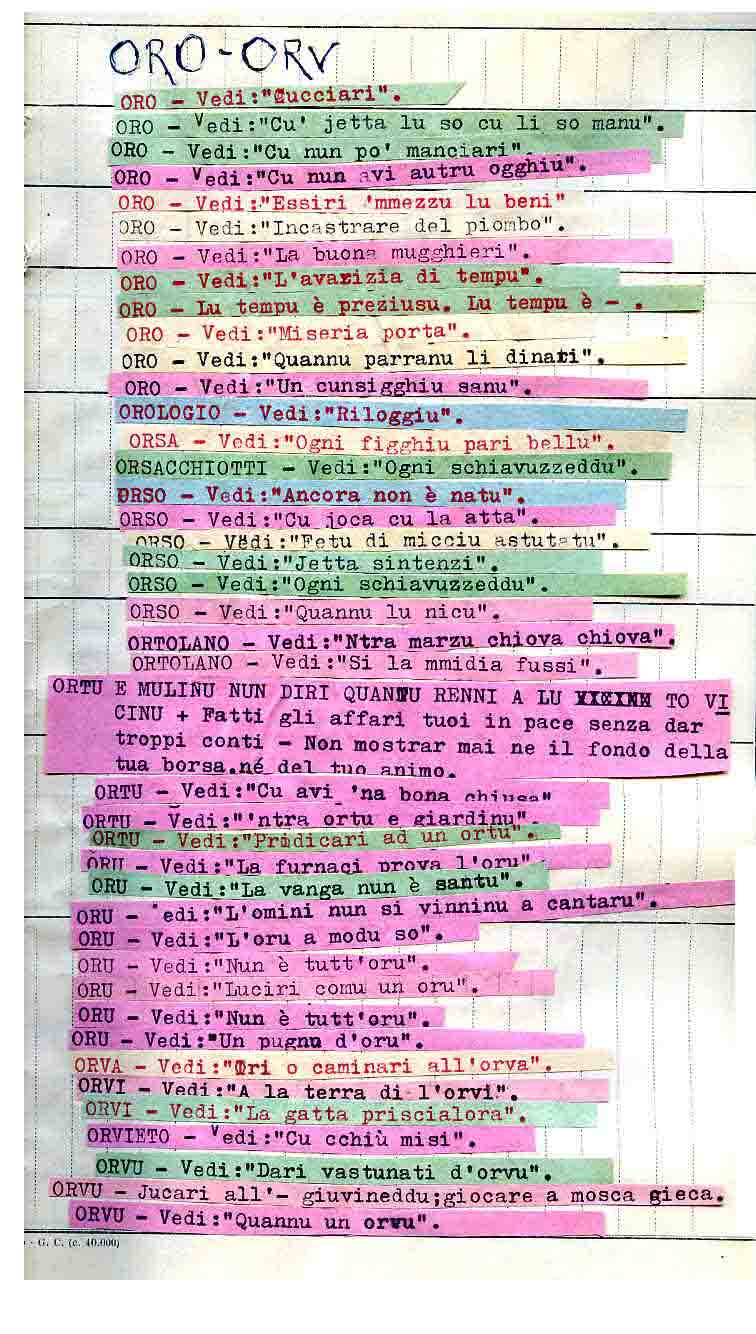 ORO-ORV
ORO - Vedi:"Cucciari".
ORO - Vedi:"Cu' jetta lu so cu li so manu".
ORO - Vedi:"Cu nun po' manciari".
ORO - Vedi:"Cu nun avi autru ogghiu".
ORO - Vedi:"Essiri 'mmezzu lu beni"
ORO - Vedi:"Incastrare del piombo".
ORO - Vedi:"La buona mugghieri".
ORO - Vedi:"L'avarizia di tempu".
ORO - Lu tempu è preziusu. Lu tempu è - .
ORO - Vedi:"Miseria porta".
ORO - Vedi:"Quannu parranu li dinari".
ORO - Vedi:"Un cunsigghiu sanu".
OROLOGIO - Vedi:"Riloggiu".
ORSA - Vedi:"Ogni figghiu pari bellu".
ORSACCHIOTTI - Vedi:"Ogni schiavuzzeddu".
ORSO - Vedi:"Ancora non è natu".
ORSO - Vedi:"Cu joca cu la atta".
ORSO - Vedi:"Fetu di micciu astutatu".
ORSO - Vedi:"Jetta sintenzi".
ORSO - Vedi:"Ogni schiavuzzeddu".
ORSO - Vedi:"Quannu lu nicu".
ORTOLANO - Vedi:"Ntra marzu chiova chiova".
ORTOLANO - Vedi:"Si la mmidia fussi".
ORTU E MULINU NUN DIRI QUANTU RENNI A LU TO VI
CINU + Fatti gli affari tuoi in pace senza dar
troppi conti - Non mostrar mai ne il fondo della
tua borsa.né del tuo animo.
ORTU - Vedi:"Cu avi 'na bona chiusa"
ORTU - Vedi:"'ntra ortu e giardinu".
ORTU - Vedi:"Pridicari ad un ortu".
ORU - Vedi:"La furnaci prova l'oru".
ORU - Vedi:"La vanga nun è santu".
ORU - edi:"L'omini nun si vinninu a cantaru".
ORU - Vedi:"L'oru a modu so".
ORU - Vedi:"Nun è tutt'oru".
ORU - Vedi:"Luciri comu un oru".
ORU - Vedi:"Nun è tutt'oru".
ORU - Vedi:"Un pugnu d'oru".
ORVA - Vedi:"Iri o caminari all'orva".
ORVI - Vedi:"A la terra di l'orvi".
ORVI - Vedi:"La gatta priscialora".
ORVIETO - Vedi:"Cu cchiù misi".
ORVU - Vedi:"Dari vastunati d'orvu".
ORVU - Jucari all'- giuvineddu;giocare a mosca gieca.
ORVU - Vedi:"Quannu un orvu".
- G. C. (c. 40.000)